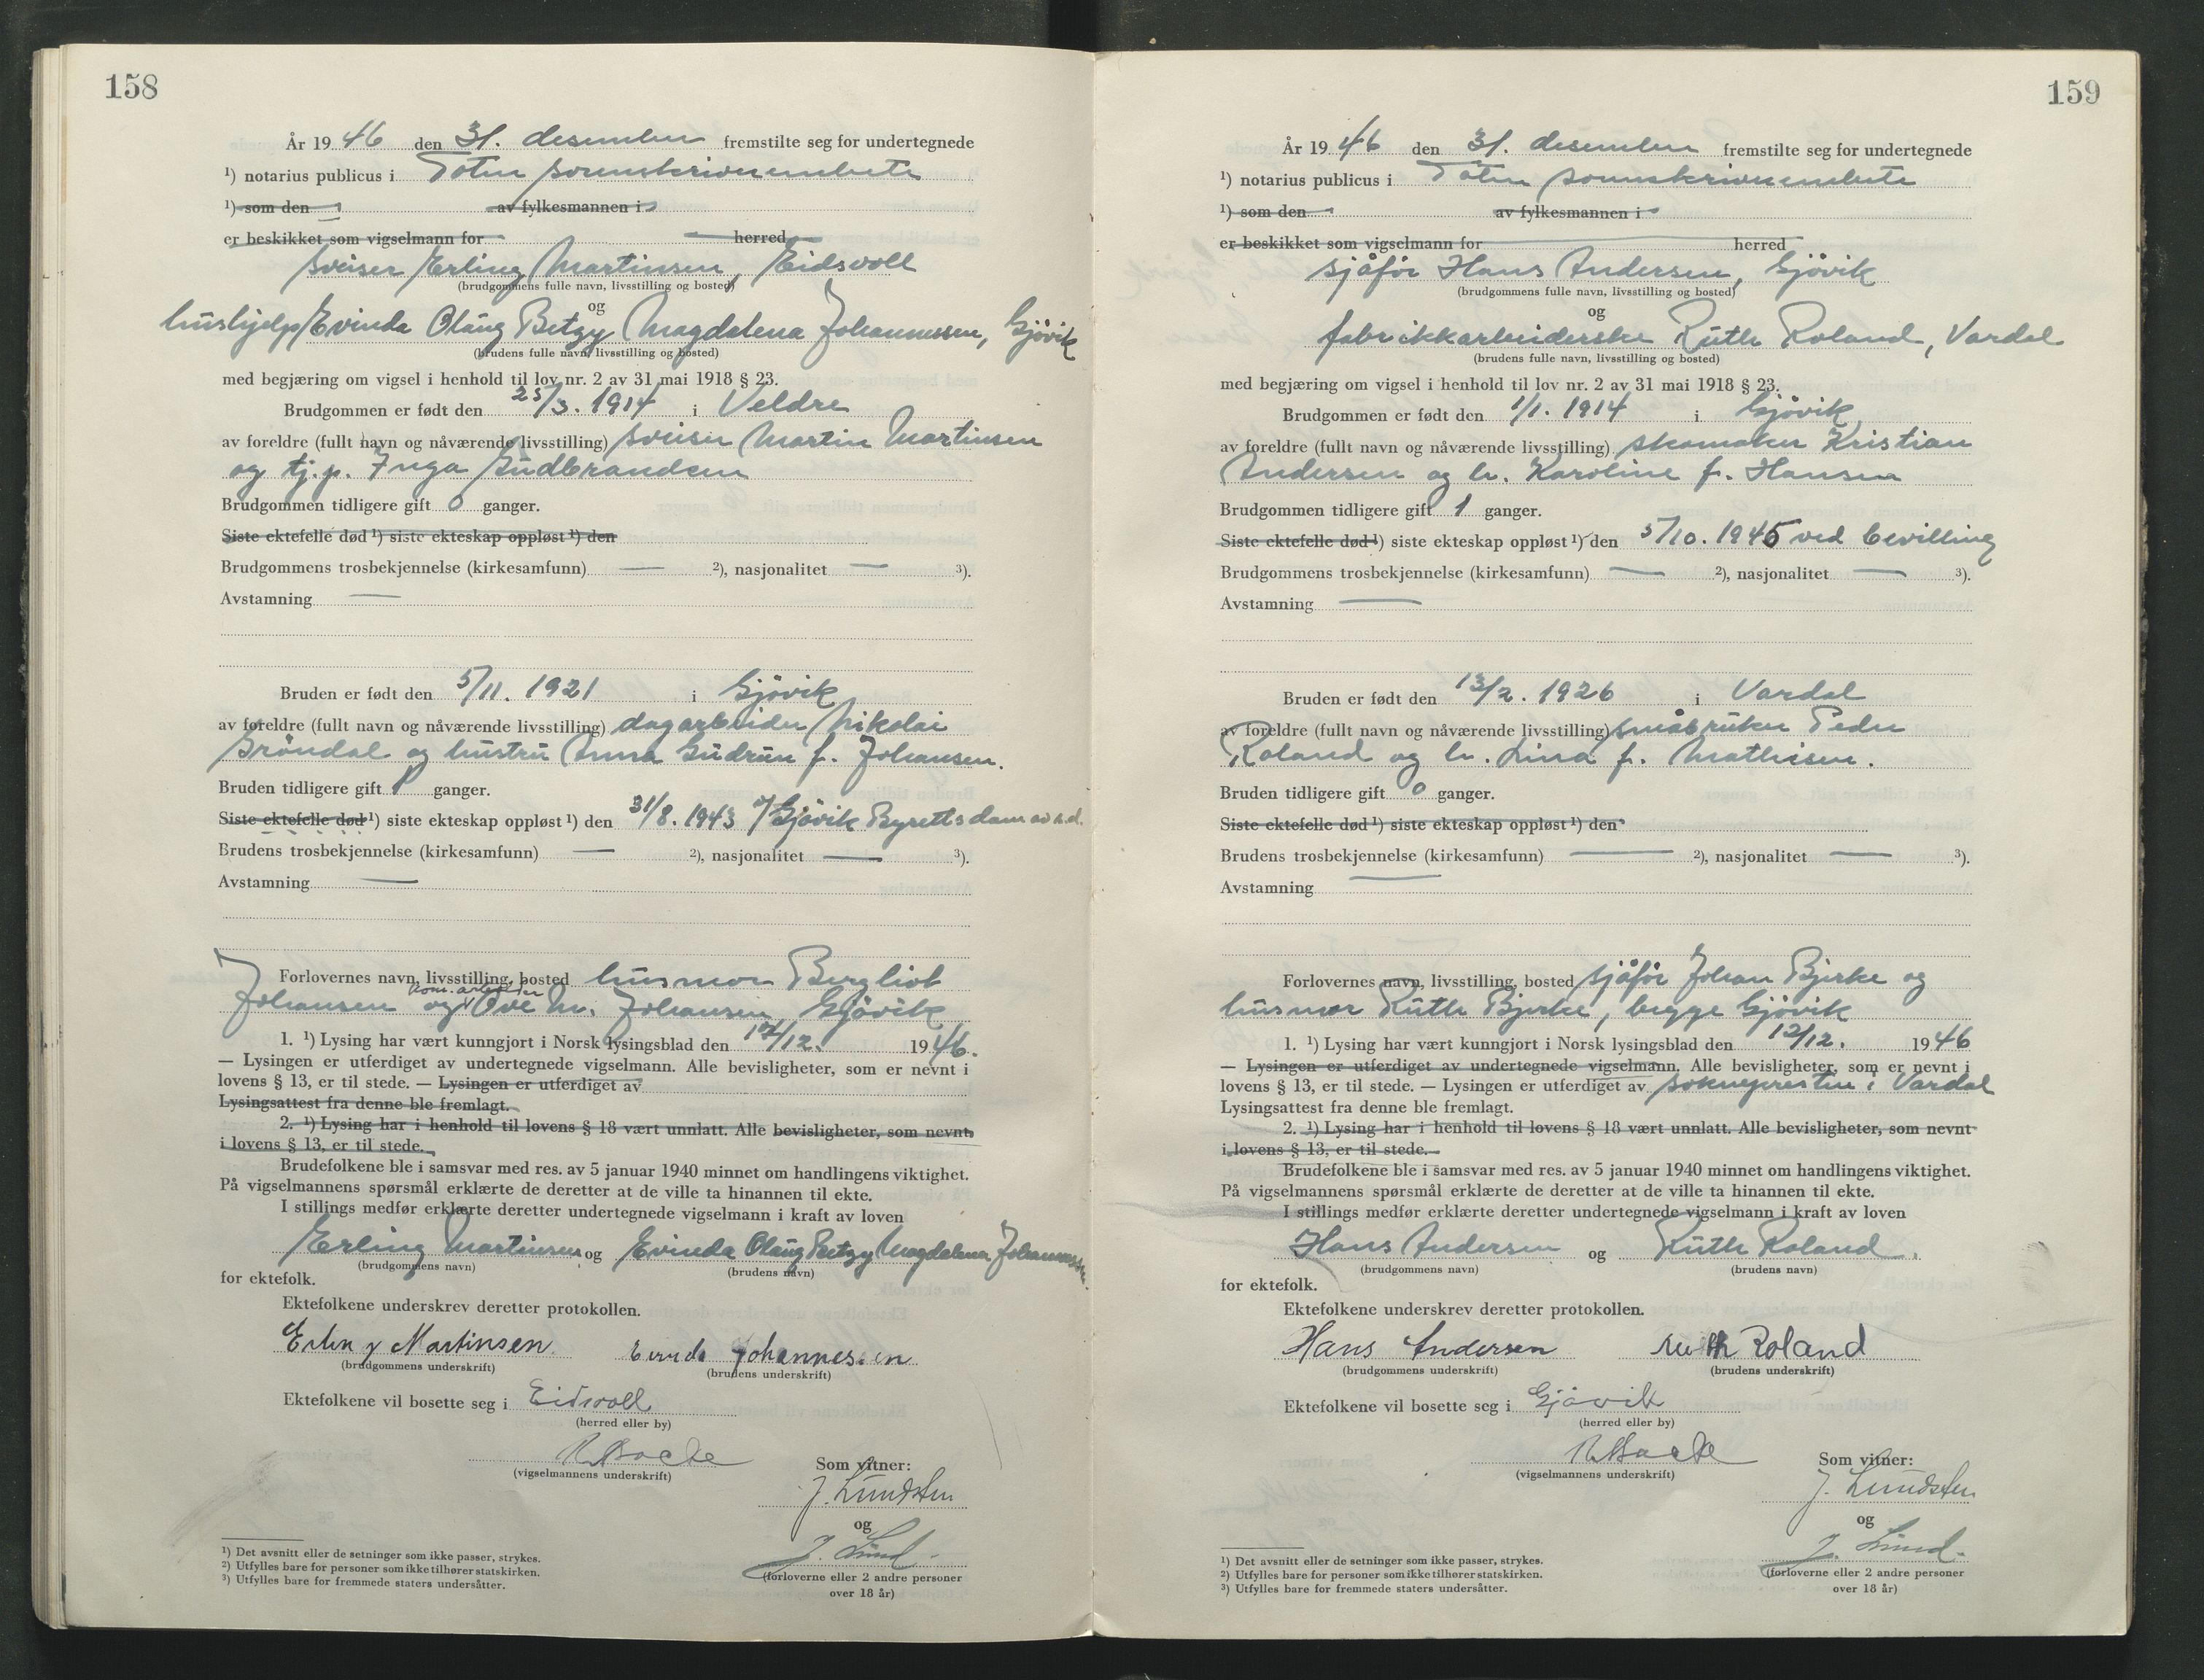 158
År 19 46 den 31. desember fremstilte seg for undertegnede
¹) notarius publicus i Toten sorenskriverembete
¹) som den av fylkesmannen i
er beskikket som vigselmann for herred
sveiser Erling Martinsen, Eidsvoll
(brudgommens fulle navn, livsstilling og bosted)
og
hushjelp Evinda Olaug Betzy Magdalena Johannessen, Gjövik
(brudens fulle navn, livsstilling og bosted)
med begjæring om vigsel i henhold til lov nr. 2 av 31 mai 1918 § 23.
Brudgommen er født den 25/3. 1914 i Veldre
av foreldre (fullt navn og nåværende livsstilling) sveiser Martin Martinsen
og tj.p. Inga Gudbrandsen
Brudgommen tidligere gift 0 ganger.
Siste ektefelle død ¹) siste ekteskap oppløst ¹) den
Brudgommens trosbekjennelse (kirkesamfunn) — ²), nasjonalitet — ³).
Avstamning —
Bruden er født den 5/11. 1921 i Gjövik
av foreldre (fullt navn og nåværende livsstilling) dagarbeider Nikolai
Gröndal og hustru Anna Gudrun f. Johansen.
Bruden tidligere gift 1 ganger.
Siste ektefelle død ¹) siste ekteskap oppløst ¹) den 31/8. 1943 v/Gjövik Byretts dom av s.d.
Brudens trosbekjennelse (kirkesamfunn) — ²), nasjonalitet — ³).
Avstamning —
Forlovernes navn, livsstilling, bosted husmor Bergliot
kom. arbeider
Johansen og Ove M. Johansen, Gjövik
1. ¹) Lysing har vært kunngjort i Norsk lysingsblad den 12/12. 19 46.
— Lysingen er utferdiget av undertegnede vigselmann. Alle bevisligheter, som er nevnt i
lovens § 13, er til stede. — Lysingen er utferdiget av
Lysingsattest fra denne ble fremlagt.
2. ¹) Lysing har i henhold til lovens § 18 vært unnlatt. Alle bevisligheter, som nevnt
i lovens § 13, er til stede.
Brudefolkene ble i samsvar med res. av 5 januar 1940 minnet om handlingens viktighet.
På vigselmannens spørsmål erklærte de deretter at de ville ta hinannen til ekte.
I stillings medfør erklærte deretter undertegnede vigselmann i kraft av loven
Erling Martinsen og Evinda Olaug Betzy Magdalena Johannessen
(brudgommens navn) (brudens navn)
for ektefolk.
Ektefolkene underskrev deretter protokollen.
Erling Martinsen Evinda Johannessen
(brudgommens underskrift) (brudens underskrift)
Ektefolkene vil bosette seg i Eidsvoll
(herred eller by)
(vigselmannens underskrift)
Som vitner:
J. Lundsten
og
J. Lund
(forloverne eller 2 andre personer
over 18 år)
¹) Det avsnitt eller de setninger som ikke passer, strykes.
²) Utfylles bare for personer som ikke tilhører statskirken.
³) Utfylles bare for fremmede staters undersåtter.
159
År 19 46 den 31. desember fremstilte seg for undertegnede
¹) notarius publicus i Toten sorenskriverembete
¹) som den av fylkesmannen i
er beskikket som vigselmann for herred
sjåför Hans Andersen, Gjövik
(brudgommens fulle navn, livsstilling og bosted)
og
fabrikkarbeiderske Ruth Roland, Vardal
(brudens fulle navn, livsstilling og bosted)
med begjæring om vigsel i henhold til lov nr. 2 av 31 mai 1918 § 23.
Brudgommen er født den 1/1. 1914 i Gjövik
av foreldre (fullt navn og nåværende livsstilling) skomaker Kristian
Andersen og h. Karoline f. Hansen
Brudgommen tidligere gift 1 ganger.
Siste ektefelle død ¹) siste ekteskap oppløst ¹) den 5/10. 1945 ved bevilling
Brudgommens trosbekjennelse (kirkesamfunn) — ²), nasjonalitet — ³).
Avstamning —
Bruden er født den 13/2. 1926 i Vardal
av foreldre (fullt navn og nåværende livsstilling) småbruker Peder
Roland og h. Lina f. Mathisen.
Bruden tidligere gift 0 ganger.
Siste ektefelle død ¹) siste ekteskap oppløst ¹) den
Brudens trosbekjennelse (kirkesamfunn) — ²), nasjonalitet — ³).
Avstamning —
Forlovernes navn, livsstilling, bosted sjåför Johan Bjerke og
husmor Ruth Bjerke, begge Gjövik
1. ¹) Lysing har vært kunngjort i Norsk lysingsblad den 12/12. 19 46
— Lysingen er utferdiget av undertegnede vigselmann. Alle bevisligheter, som er nevnt i
lovens § 13, er til stede. — Lysingen er utferdiget av soknepresten i Vardal
Lysingsattest fra denne ble fremlagt.
2. ¹) Lysing har i henhold til lovens § 18 vært unnlatt. Alle bevisligheter, som nevnt
i lovens § 13, er til stede.
Brudefolkene ble i samsvar med res. av 5 januar 1940 minnet om handlingens viktighet.
På vigselmannens spørsmål erklærte de deretter at de ville ta hinannen til ekte.
I stillings medfør erklærte deretter undertegnede vigselmann i kraft av loven
Hans Andersen og Ruth Roland.
(brudgommens navn) (brudens navn)
for ektefolk.
Ektefolkene underskrev deretter protokollen.
Hans Andersen Ruth Roland
(brudgommens underskrift) (brudens underskrift)
Ektefolkene vil bosette seg i Gjövik
(herred eller by)
(vigselmannens underskrift)
Som vitner:
J. Lundsten
og
J. Lund.
(forloverne eller 2 andre personer
over 18 år)
¹) Det avsnitt eller de setninger som ikke passer, strykes.
²) Utfylles bare for personer som ikke tilhører statskirken.
³) Utfylles bare for fremmede staters undersåtter.